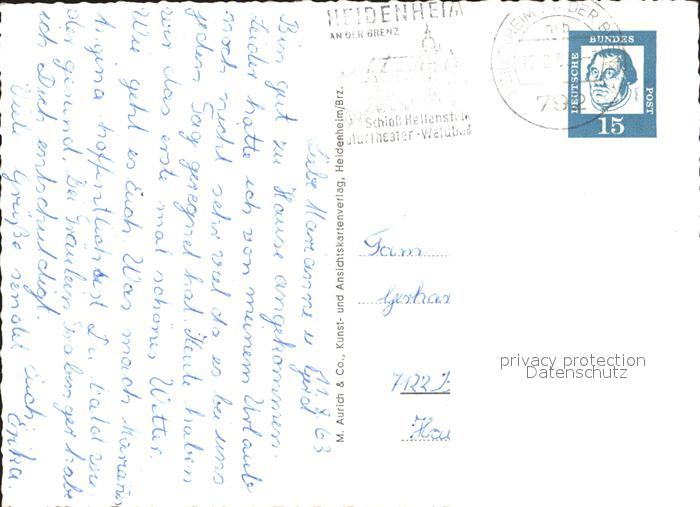 HEIDENHEIM
AN DER BRENZ
Schloß Hellenstein
Naturtheater · Waldbad
792
DEUTSCHE BUNDES POST
15
M. Aurich & Co., Kunst- und Ansichtskartenverlag, Heidenheim/Brz.
11.8.63
Liebe Marianne u Gerd
Bin gut zu Hause angekommen.
Leider hatte ich von meinem Urlaub
noch nicht sehr viel da es bei uns
jeden Tag geregnet hat. Heute haben
wir das erste mal schönes Wetter.
Wie geht es Euch. Was mach Mariann
Angina hoffentlich bist Du bald wie
der gesund. Bei Fräulein habe
ich Dich entschuldigt.
Viele Grüße sendet Euch
Erika.
Fam
Gerhar
7122
Hau
privacy protection
Datenschutz